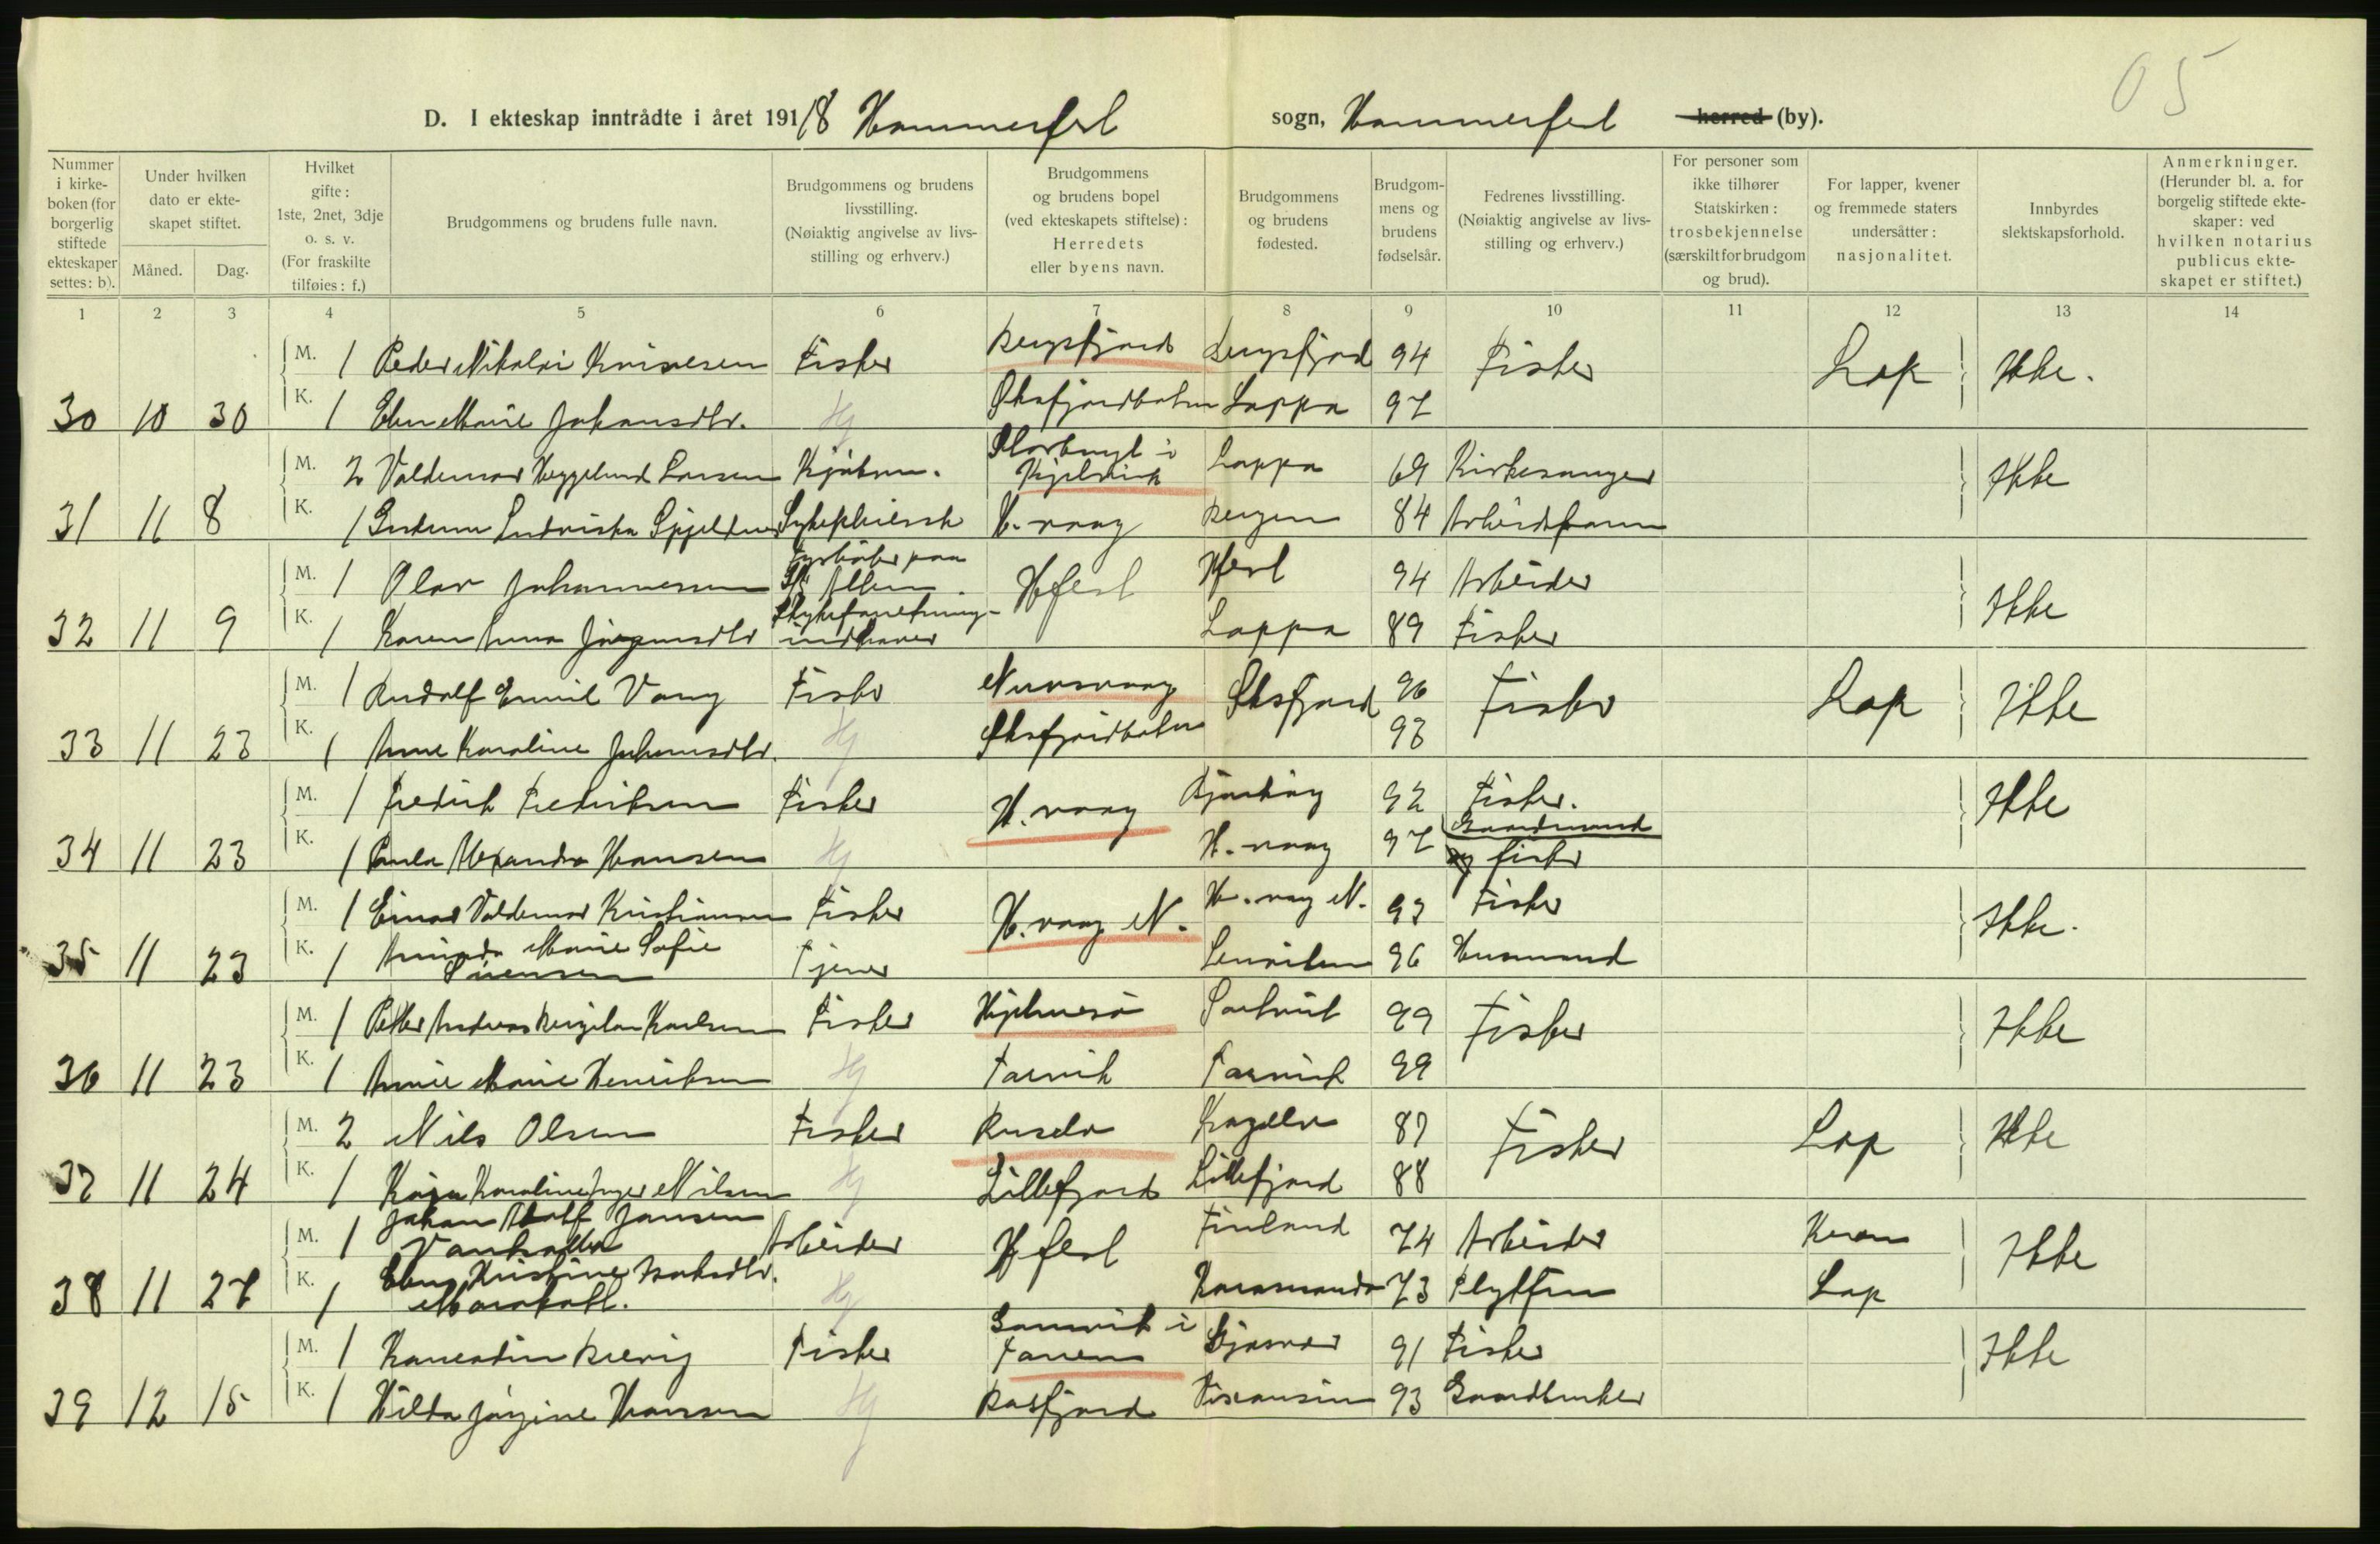 05
D. I ekteskap inntrådte i året 1918 Hammerfest sogn, Hammerfest herred (by).
Nummer i kirkeboken (for borgerlig stiftede ekteskaper settes: b).
Under hvilken dato er ekteskapet stiftet.
Måned. Dag.
Hvilket gifte: 1ste, 2net, 3dje o. s. v. (For fraskilte tilføies: f.)
Brudgommens og brudens fulle navn.
Brudgommens og brudens livsstilling. (Nøiaktig angivelse av livsstilling og erhverv.)
Brudgommens og brudens bopel (ved ekteskapets stiftelse): Herredets eller byens navn.
Brudgommens og brudens fødested.
Brudgommens og brudens fødselsår.
Fedrenes livsstilling. (Nøiaktig angivelse av livsstilling og erhverv.)
For personer som ikke tilhører Statskirken: trosbekjennelse (særskilt for brudgom og brud).
For lapper, kvener og fremmede staters undersåtter: nasjonalitet.
Innbyrdes slektskapsforhold.
Anmerkninger. (Herunder bl. a. for borgelig stiftede ekteskaper: ved hvilken notarius publicus ekteskapet er stiftet.)
1 2 3 4 5 6 7 8 9 10 11 12 13 14
M. 1 Peder Nikolai Fisker Bergsfjord Bergsfjord 94 Fisker Lap Ikke.
30 10 30 K. 1 Elen Marie Johansdtr. Hj Øksfjordbotn Loppa 97
M. 2 Valdemar Heggelund Larsen Kjøbm. i Kjelvik Loppa 69 Kirkesanger Ikke
31 11 8 K. 1 Ludviska Sykepleiersk H. vaag Bergen 84 Arbeidsform
M. 1 Olav Johannesen Fyrbøter paa Hfest Hfest 94 Arbeider Ikke
32 11 9 K. 1 Karen Anna Jørgensdtr indhaver Loppa 89 Fisker
M. 1 Rudolf Emil Vang Fisker Øksfjord 96 Fisker Lap Ikke
33 11 23 K. 1 Anne Karoline Johansdtr. Hj Øksfjordbotn 93
M. 1 Fredrik Fredriksen Fisker H. vaag 92 Fisker. Ikke
34 11 23 K. 1 Paula Alexandra Hansen Hj H. vaag 97 Gaardmand og fisker
M. 1 Einar Valdemar Kristiansen Fisker H. vaag N. H. vaag N. 93 Fisker Ikke.
35 11 23 K. 1 Marie Sofie Sørensen Tjener Lenviken 96 Husmand
M. 1 Petter Andreas Karlsen Fisker Hjelmsø 99 Fisker Ikke
36 11 23 K. 1 Annie Marie Henriksen Hj Tarvik Tarvik 99
M. 2 Nils Olsen Fisker Russelv 87 Fisker Lap Ikke
37 11 24 K. 1 Kaja Karoline Inger Nilsen Hj Lillefjord Lillefjord 88
M. 1 Johan Adolf Jansen Arbeider Hfest Finland 74 Arbeider Kven Ikke
38 11 27 K. 1 Kristine Isaksdtr. Hj 73 Lap
M. 1 Fisker Gamvik i Tanen 91 Fisker Ikke
39 12 15 K. 1 Hilda Jørgine Hansen Hj 93 Gaardbruker